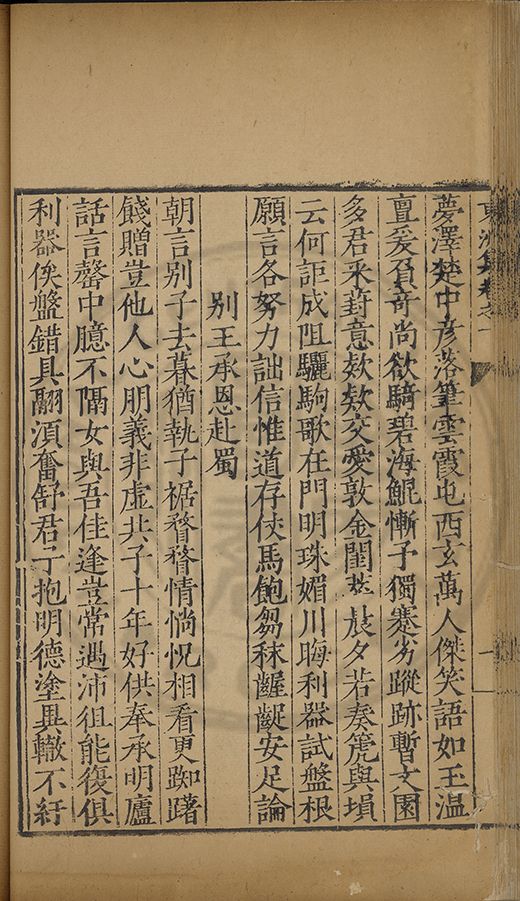 夢澤楚中彦落筆雲霞屯西玄萬人傑笑語如玉温
亶爰負奇尚欲騎碧海鯤慚予獨蹇劣蹤跡暫文園
多君采葑意欵欵交愛敦金閨並晨夕若奏箎與塤
云何詎成阻驪駒歌在門明珠媚川晦利器試盤根
願言各努力詘信惟道存俠馬飽芻秣齷齪安足論
別王承恩赴蜀
朝言別子去暮猶執子裾瞀瞀情惝怳相看更踟躇
餞贈豈他人心朋義非虚共子十年好供奉承明廬
話言罄中臆不隔女與吾佳逢豈常遇沛徂能復俱
利器俟盤錯具翮湏奮舒君子抱明德塗異轍不紆